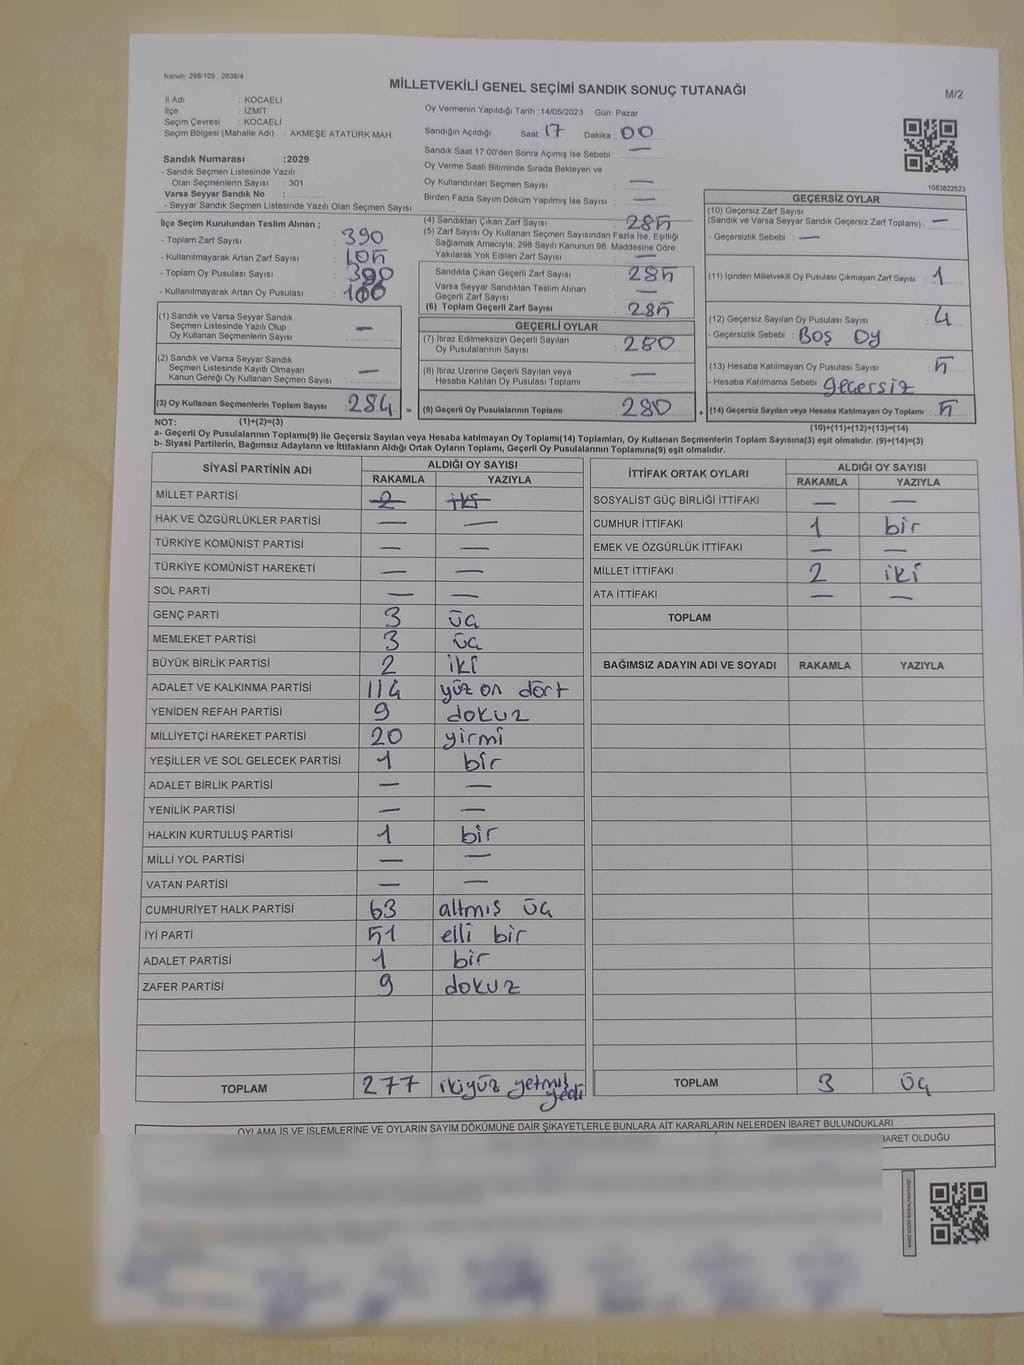 Kanun, 298/105 , 2839/4
MİLLETVEKİLİ GENEL SEÇİMİ SANDIK SONUÇ TUTANAĞI
M/2
İl Adı : KOCAELİ
İlçe : İZMİT
Seçim Çevresi : KOCAELİ
Seçim Bölgesi (Mahalle Adı) : AKMEŞE ATATÜRK MAH
Sandık Numarası :2029
- Sandık Seçmen Listesinde Yazılı
Olan Seçmenlerin Sayısı : 301
Varsa Seyyar Sandık No :
- Seyyar Sandık Seçmen Listesinde Yazılı Olan Seçmen Sayısı :
Oy Vermenin Yapıldığı Tarih :14/05/2023 Gün: Pazar
Sandığın Açıldığı Saat 17 Dakika : 00
Sandık Saat 17:00'den Sonra Açımış İse Sebebi : —
Oy Verme Saati Bitiminde Sırada Bekleyen ve
Oy Kullandırılan Seçmen Sayısı : —
Birden Fazla Sayım Döküm Yapılmış İse Sayısı : —
1083822523
İlçe Seçim Kurulundan Teslim Alınan ;
- Toplam Zarf Sayısı : 390
- Kullanılmayarak Artan Zarf Sayısı : 105
- Toplam Oy Pusulası Sayısı : 390
- Kullanılmayarak Artan Oy Pusulası :
(1) Sandık ve Varsa Seyyar Sandık
Seçmen Listesinde Yazılı Olup
Oy Kullanan Seçmenlerin Sayısı : —
(2) Sandık ve Varsa Seyyar Sandık
Seçmen Listesinde Kayıtlı Olmayan
Kanun Gereği Oy Kullanan Seçmen Sayısı : —
(3) Oy Kullanan Seçmenlerin Toplam Sayısı : 284 =
(4) Sandıktan Çıkan Zarf Sayısı : 285
(5) Zarf Sayısı Oy Kullanan Seçmen Sayısından Fazla İse, Eşitliği
Sağlamak Amacıyla, 298 Sayılı Kanunun 98. Maddesine Göre
Yakılarak Yok Edilen Zarf Sayısı : —
Sandıkta Çıkan Geçerli Zarf Sayısı : 285
Varsa Seyyar Sandıktan Teslim Alınan
Geçerli Zarf Sayısı : —
(6) Toplam Geçerli Zarf Sayısı : 285
GEÇERLİ OYLAR
(7) İtiraz Edilmeksizin Geçerli Sayılan
Oy Pusulalarının Sayısı : 280
(8) İtiraz Üzerine Geçerli Sayılan veya
Hesaba Katılan Oy Pusulası Toplamı : —
(9) Geçerli Oy Pusulalarının Toplamı : 280 +
GEÇERSİZ OYLAR
(10) Geçersiz Zarf Sayısı
(Sandık ve Varsa Seyyar Sandık Geçersiz Zarf Toplamı) : —
- Geçersizlik Sebebi : —
(11) İçinden Milletvekili Oy Pusulası Çıkmayan Zarf Sayısı : 1
(12) Geçersiz Sayılan Oy Pusulası Sayısı : 4
- Geçersizlik Sebebi : Boş Oy
(13) Hesaba Katılmayan Oy Pusulası Sayısı : 5
- Hesaba Katılmama Sebebi : geçersiz
(14) Geçersiz Sayılan veya Hesaba Katılmayan Oy Toplamı : 5
NOT: (1)+(2)=(3) (10)+(11)+(12)+(13)=(14)
a- Geçerli Oy Pusulalarının Toplamı(9) ile Geçersiz Sayılan veya Hesaba katılmayan Oy Toplamı(14) Toplamları, Oy Kullanan Seçmenlerin Toplam Sayısına(3) eşit olmalıdır. (9)+(14)=(3)
b- Siyasi Partilerin, Bağımsız Adayların ve İttifakların Aldığı Ortak Oyların Toplamı, Geçerli Oy Pusulalarının Toplamına(9) eşit olmalıdır.
SİYASİ PARTİNİN ADI ALDIĞI OY SAYISI
RAKAMLA YAZIYLA
MİLLET PARTİSİ 2 iki
HAK VE ÖZGÜRLÜKLER PARTİSİ — —
TÜRKİYE KOMÜNİST PARTİSİ — —
TÜRKİYE KOMÜNİST HAREKETİ — —
SOL PARTİ — —
GENÇ PARTİ 3 üç
MEMLEKET PARTİSİ 3 üç
BÜYÜK BİRLİK PARTİSİ 2 iki
ADALET VE KALKINMA PARTİSİ 114 yüz on dört
YENİDEN REFAH PARTİSİ 9 dokuz
MİLLİYETÇİ HAREKET PARTİSİ 20 yirmi
YEŞİLLER VE SOL GELECEK PARTİSİ 1 bir
ADALET BİRLİK PARTİSİ — —
YENİLİK PARTİSİ — —
HALKIN KURTULUŞ PARTİSİ 1 bir
MİLLİ YOL PARTİSİ — —
VATAN PARTİSİ — —
CUMHURİYET HALK PARTİSİ 63 altmış üç
İYİ PARTİ 51 elli bir
ADALET PARTİSİ 1 bir
ZAFER PARTİSİ 9 dokuz
TOPLAM 277 ikiyüz yetmiş yedi
İTTİFAK ORTAK OYLARI ALDIĞI OY SAYISI
RAKAMLA YAZIYLA
SOSYALİST GÜÇ BİRLİĞİ İTTİFAKI — —
CUMHUR İTTİFAKI 1 bir
EMEK VE ÖZGÜRLÜK İTTİFAKI — —
MİLLET İTTİFAKI 2 iki
ATA İTTİFAKI — —
TOPLAM
BAĞIMSIZ ADAYIN ADI VE SOYADI RAKAMLA YAZIYLA
TOPLAM 3 üç
OYLAMA İŞ VE İŞLEMLERİNE VE OYLARIN SAYIM DÖKÜMÜNE DAİR ŞİKAYETLERLE BUNLARA AİT KARARLARIN NELERDEN İBARET BULUNDUKLARI
BARET OLDUĞU